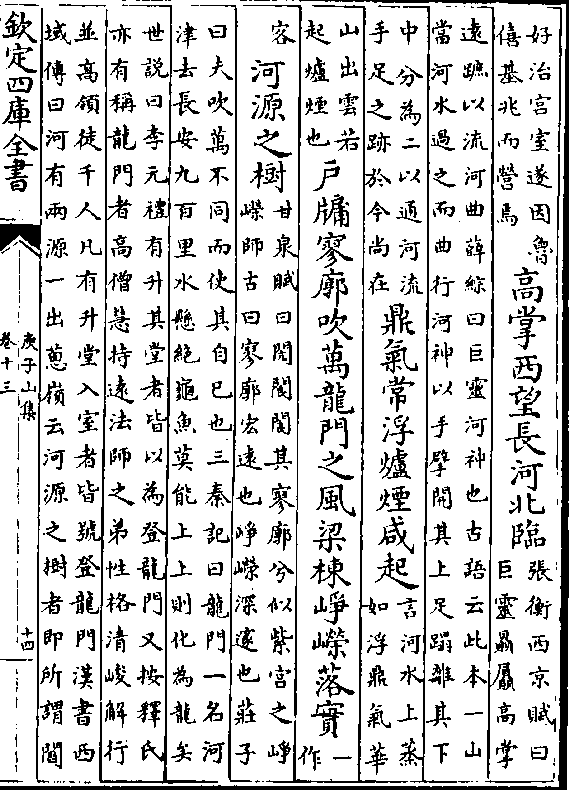 好治宮室遂因魯
僖基兆而營焉
高掌西望長河北臨
張衡西京賦曰
巨靈贔屭高掌
遠蹠以流河曲薛綜曰巨靈河神也古語云此本一山
當河水過之而曲行河神以手擘開其上足蹋離其下
中分為二以通河流
手足之跡於今尚在
鼎氣常浮爐煙咸起
言河水上蒸
如浮鼎氣華
山出雲若
起爐煙也
戶牗寥廓吹萬龍門之風梁棟崢嶸落實
一
作
容
河源之樹
甘泉賦曰閌閬閬其寥廓兮似紫宮之崢
嶸師古曰寥廓宏遠也崢嶸深邃也莊子
曰夫吹萬不同而使其自已也三秦記曰龍門一名河
津去長安九百里水懸絶龜魚莫能上上則化為龍矣
世說曰李元禮有升其堂者皆以為登龍門又按釋氏
亦有稱龍門者高僧慧持遠法師之弟性格清峻解行
並高領徒千人凡有升堂入室者皆號登龍門漢書西
域傳曰河有兩源一出蔥嶺云河源之樹者即所謂閬
欽定四庫全書
庾子山集
卷十三
十四